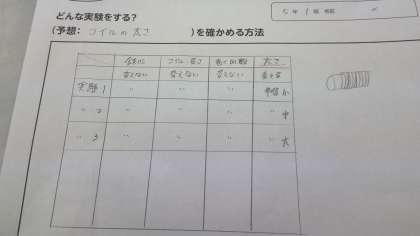 5年 1組
どんな実験をする?
(予想: コイルの太さ )を確かめる方法
鉄心 コイルの長さ 太さ
変えない 変えない 変えない 変える
実験1 〃 〃 〃 小
〃 2 〃 〃 〃 〃 中
〃 3 〃 〃 〃 〃 大